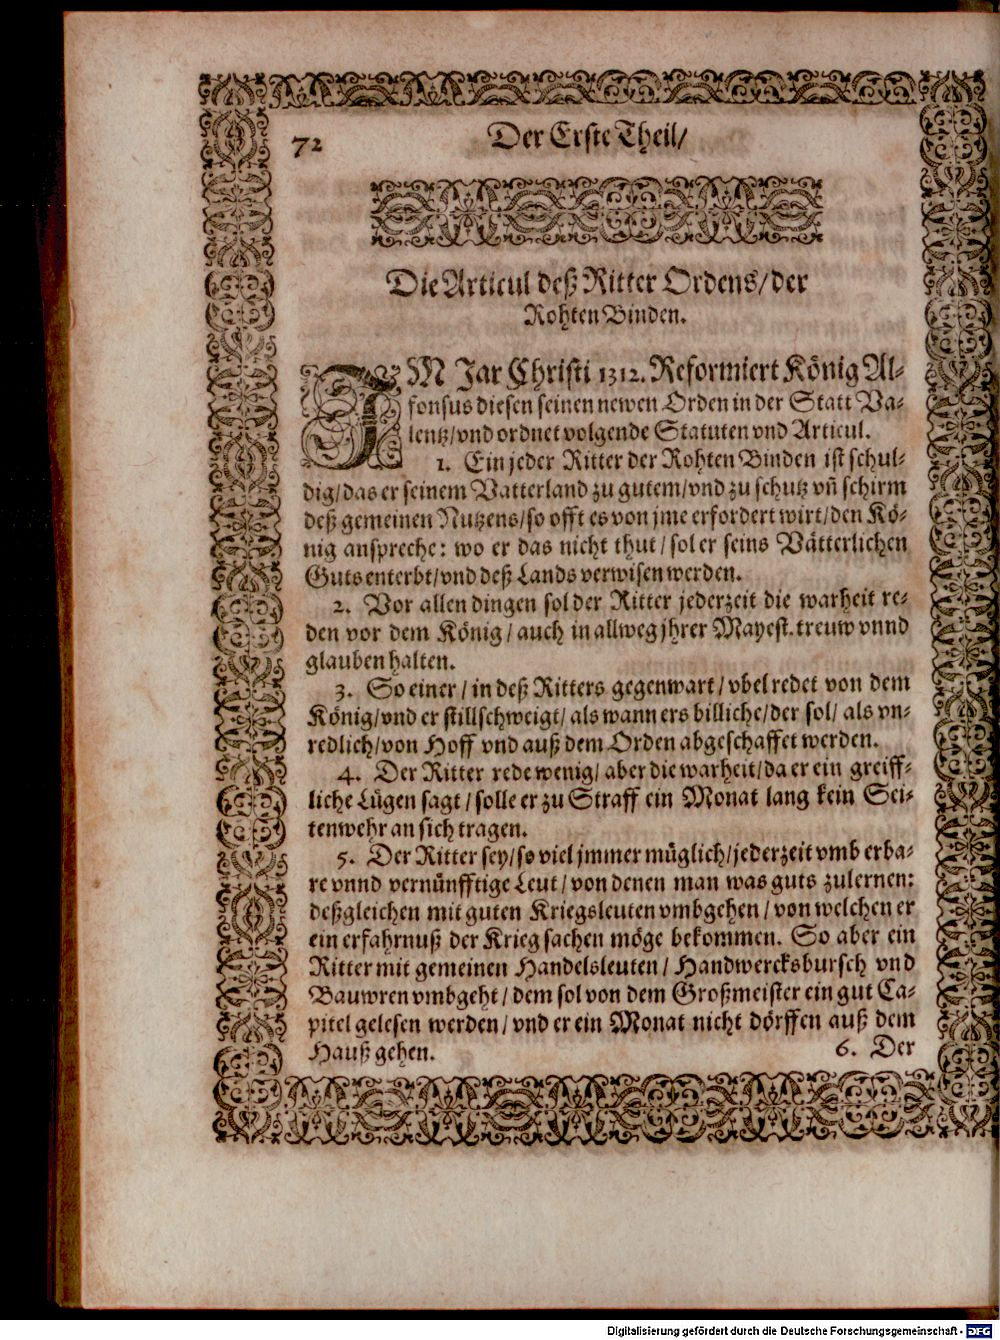 72 Der Erste Theil/
Die Articul deß Ritter Ordens/ der
Rohten Binden.
IM Jar Christi 1312. Reformiert König Al-
fonsus diesen seinen newen Orden in der Statt Va-
lentz/ vnd ordnet volgende Statuten vnd Articul.
1. Ein jeder Ritter der Rohten Binden ist schul-
dig/ das er seinem Vatterland zu gutem/ vnd zu schutz vn̄ schirm
deß gemeinen Nutzens/ so offt es von jme erfordert wirt/ den Kö-
nig anspreche: wo er das nicht thut/ sol er seins Vätterlichen
Guts enterbt/ vnd deß Lands verwisen werden.
2. Vor allen dingen sol der Ritter jederzeit die warheit re-
den vor dem König/ auch in allweg jhrer Mayest. treuw vnnd
glauben halten.
3. So einer/ in deß Ritters gegenwart/ vbel redet von dem
König/ vnd er stillschweigt/ als wann ers billiche/ der sol/ als vn-
redlich/ von Hoff vnd auß dem Orden abgeschaffet werden.
4. Der Ritter rede wenig/ aber die warheit/ da er ein greiff-
liche Lügen sagt/ solle er zu Straff ein Monat lang kein Sei-
tenwehr an sich tragen.
5. Der Ritter sey/ so viel jmmer müglich/ jederzeit vmb erba-
re vnnd vernünfftige Leut/ von denen man was guts zulernen:
deßgleichen mit guten Kriegsleuten vmbgehen/ von welchen er
ein erfahrnuß der Krieg sachen möge bekommen. So aber ein
Ritter mit gemeinen Handelsleuten/ Handwercksbursch vnd
Bauwren vmbgeht/ dem sol von dem Großmeister ein gut Ca-
pitel gelesen werden/ vnd er ein Monat nicht dörffen auß dem
Hauß gehen. 6. Der
Digitalisierung gefördert durch die Deutsche Forschungsgemeinschaft - DFG